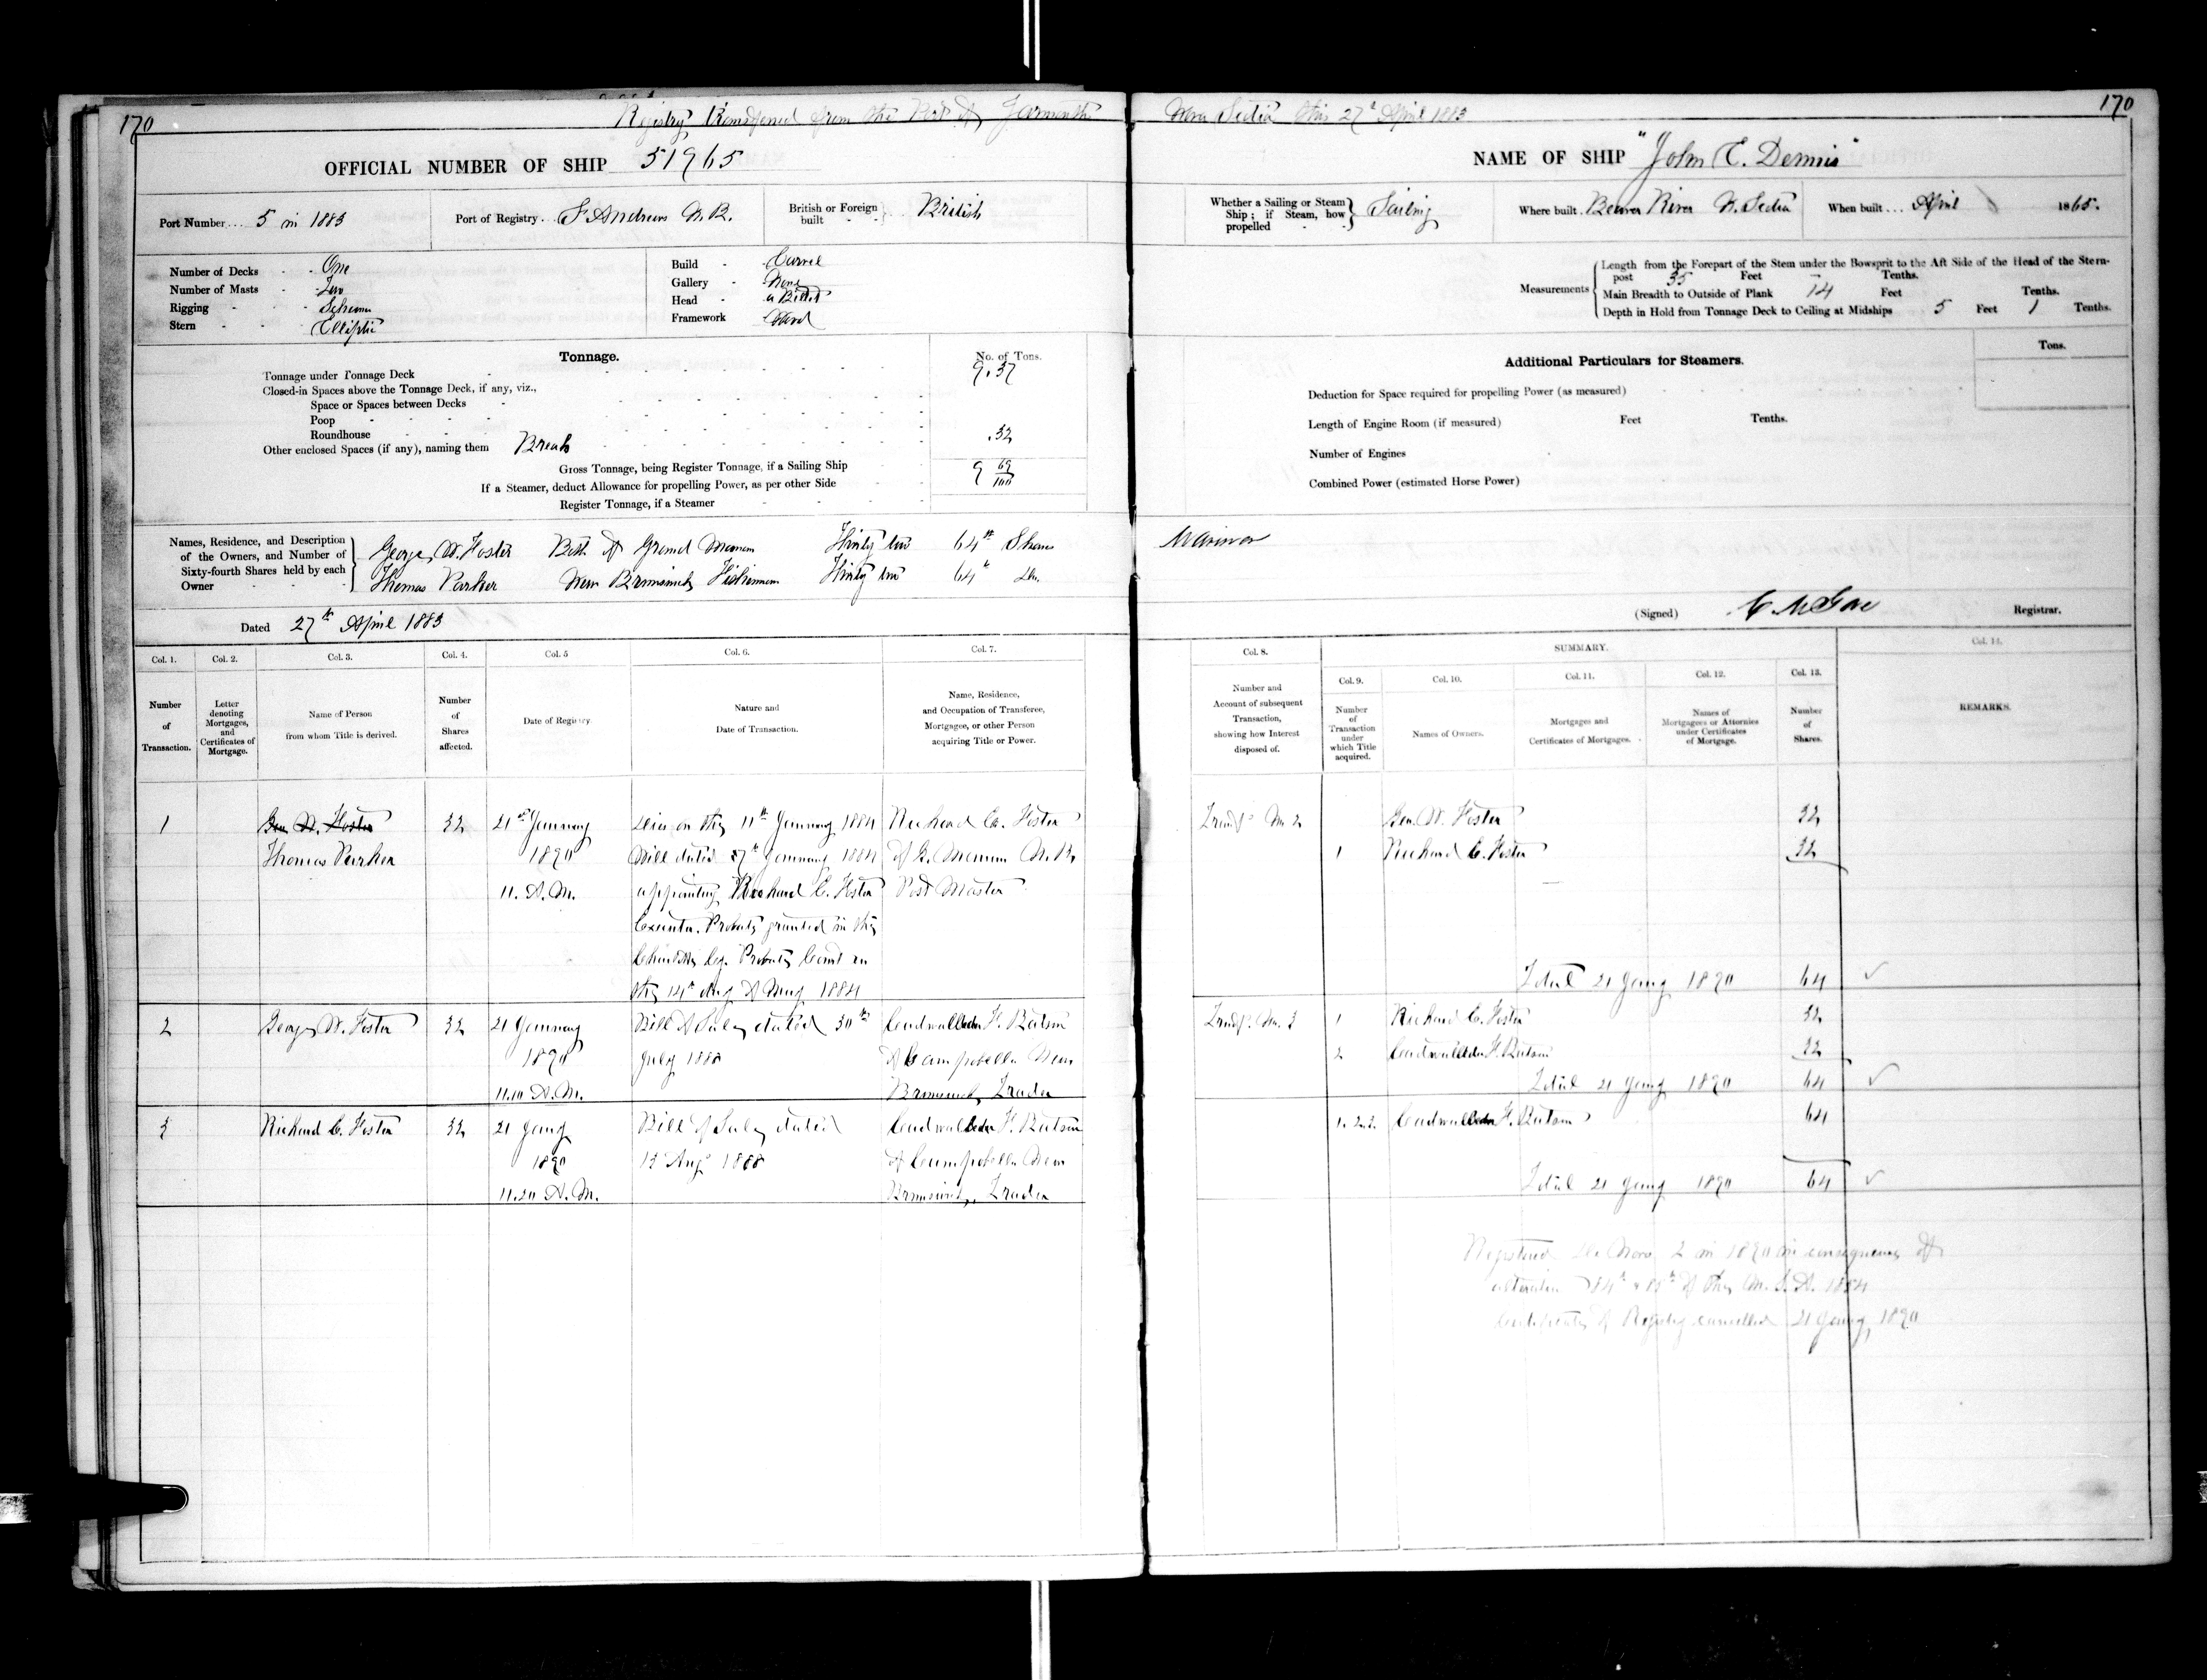 170
Registry transferred from the Port of Yarmouth
Nova Scotia this 27th April 1883
170
OFFICIAL NUMBER OF SHIP 51965
NAME OF SHIP "John E. Dennis"
Port Number... 5 in 1883
Port of Registry.. St Andrews N.B.
British or Foreign built - - British
Whether a Sailing or Steam Ship; if Steam, how propelled - - Sailing
Where built. Beaver River N. Scotia
When built... April 1865.
Number of Decks - - One
Number of Masts - Two
Rigging - - Schooner
Stern - - - Elliptic
Build - Carvel
Gallery - None
Head - a Billet
Framework Wood
Measurements
Length from the Forepart of the Stem under the Bowsprit to the Aft Side of the Head of the Stern-
post 35 Feet – Tenths.
Main Breadth to Outside of Plank 14 Feet Tenths.
Depth in Hold from Tonnage Deck to Ceiling at Midships 5 Feet 1 Tenths.
Tonnage.
No. of Tons.
Tonnage under Tonnage Deck 9.37
Closed-in Spaces above the Tonnage Deck, if any, viz.,
Space or Spaces between Decks
Poop
Roundhouse
Other enclosed Spaces (if any), naming them Break .32
Gross Tonnage, being Register Tonnage, if a Sailing Ship 9 69/100
If a Steamer, deduct Allowance for propelling Power, as per other Side
Register Tonnage, if a Steamer
Additional Particulars for Steamers.
Tons.
Deduction for Space required for propelling Power (as measured)
Length of Engine Room (if measured) Feet Tenths.
Number of Engines
Combined Power (estimated Horse Power)
Names, Residence, and Description of the Owners, and Number of Sixty-fourth Shares held by each Owner
George W. Foster Both of Grand Manan Thirty two 64th Shares
Mariner
Thomas Parker New Brunswick Fisherman Thirty two 64th Do.
Dated 27th April 1883
(Signed) Registrar.
Col. 1. Col. 2. Col. 3. Col. 4. Col. 5 Col. 6. Col. 7.
Number of Transaction.
Letter denoting Mortgages, and Certificates of Mortgage.
Name of Person from whom Title is derived.
Number of Shares affected.
Date of Registry.
Nature and Date of Transaction.
Name, Residence, and Occupation of Transferee, Mortgagee, or other Person acquiring Title or Power.
Col. 8. SUMMARY. Col. 14.
Col. 9. Col. 10. Col. 11. Col. 12. Col. 13.
Number and Account of subsequent Transaction, showing how Interest disposed of.
Number of Transaction under which Title acquired.
Names of Owners.
Mortgages and Certificates of Mortgages.
Names of Mortgagees or Attornies under Certificates of Mortgage.
Number of Shares.
REMARKS.
1 Geo W. Foster 32 21st January Died on the 11th January 1884 Richard C. Foster
Thomas Parker 1890 Will dated 7th January 1884 of G. Manan N.B.
11. A.M. appointing Richard C. Foster Post Master
Executor. Probate granted in the
Charlotte Co. Probate Court on
the 14th day of May 1884
Transf. No 2 Geo. W. Foster 32
1 Richard C. Foster 32
Total 21 Jany 1890 64
2 George W. Foster 32 21 January Bill of Sale dated 30th Cadwallader F. Batson
1890 July 1888 of Campobello New
11.10 A.M. Brunswick, Trader
Transf. No. 3 1 Richard C. Foster 32
2 Cadwallader F. Batson 32
Total 21 Jany 1890 64
3 Richard C. Foster 32 21 Jany Bill of Sale dated Cadwallader F. Batson
1890 13 Augt 1888 of Campobello New
11.20 A.M. Brunswick, Trader
1. 2. 3. Cadwallader F. Batson 64
Total 21 Jany 1890 64
Registered De Novo 2 in 1890 in consequence of
alteration 84th & 85th of the M. S. A. 1854
Certificate of Registry cancelled 21 Jany 1890